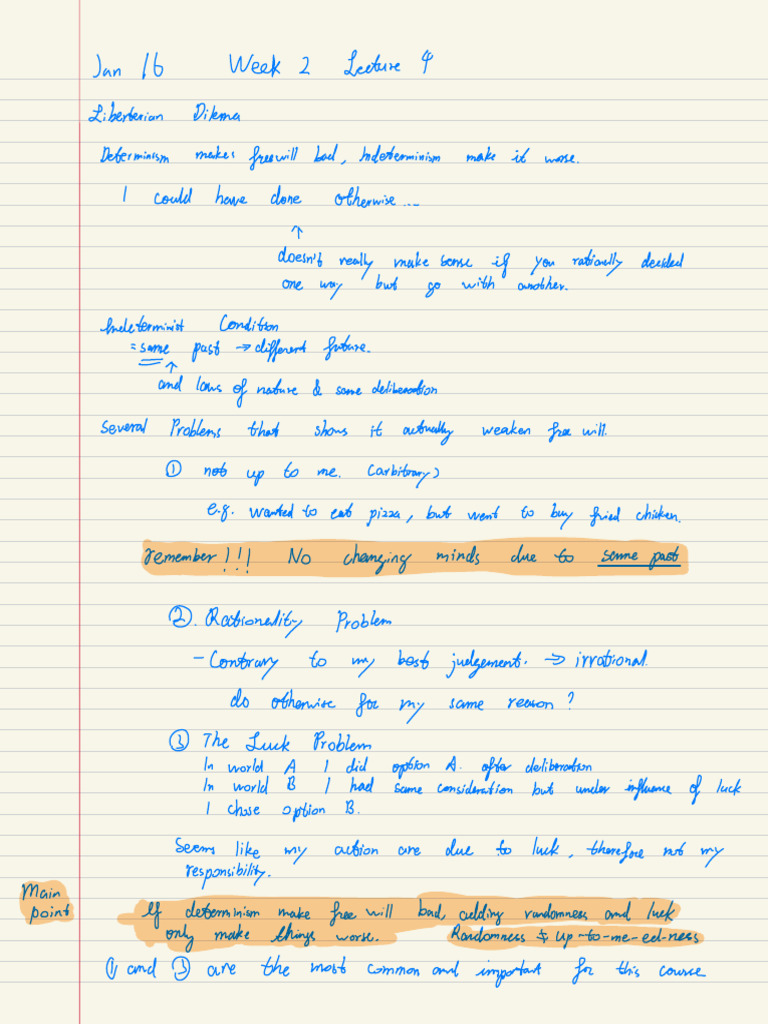 Jan 16 Week 2 Lecture 4
Liberterian Dilema
Determinism makes freewill bad, Indeterminism make it worse.
I could have done otherwise...
↑
doesn't really make sense if you rationally decided
one way but go with another.
Indeterminist Condition
= same past → different future.
↑
and laws of nature & same deliberation
Several Problems that shows it actually weaken free will.
① not up to me. (arbitrary)
e.g. wanted to eat pizza, but went to buy fried chicken.
remember!!! No changing minds due to same past
②. Rationality Problem
- Contrary to my best judgement. → irrational.
do otherwise for my same reason?
③ The Luck Problem
In world A I did option A. after deliberation
In world B I had same consideration but under influence of luck
I chose option B.
Seems like my action are due to luck, therefore not my
responsibility.
Main
point
If determinism make free will bad, adding randomness and luck
only make things worse. Randomness ≠ up-to-me-ed-ness
① and ③ are the most common and important for this course